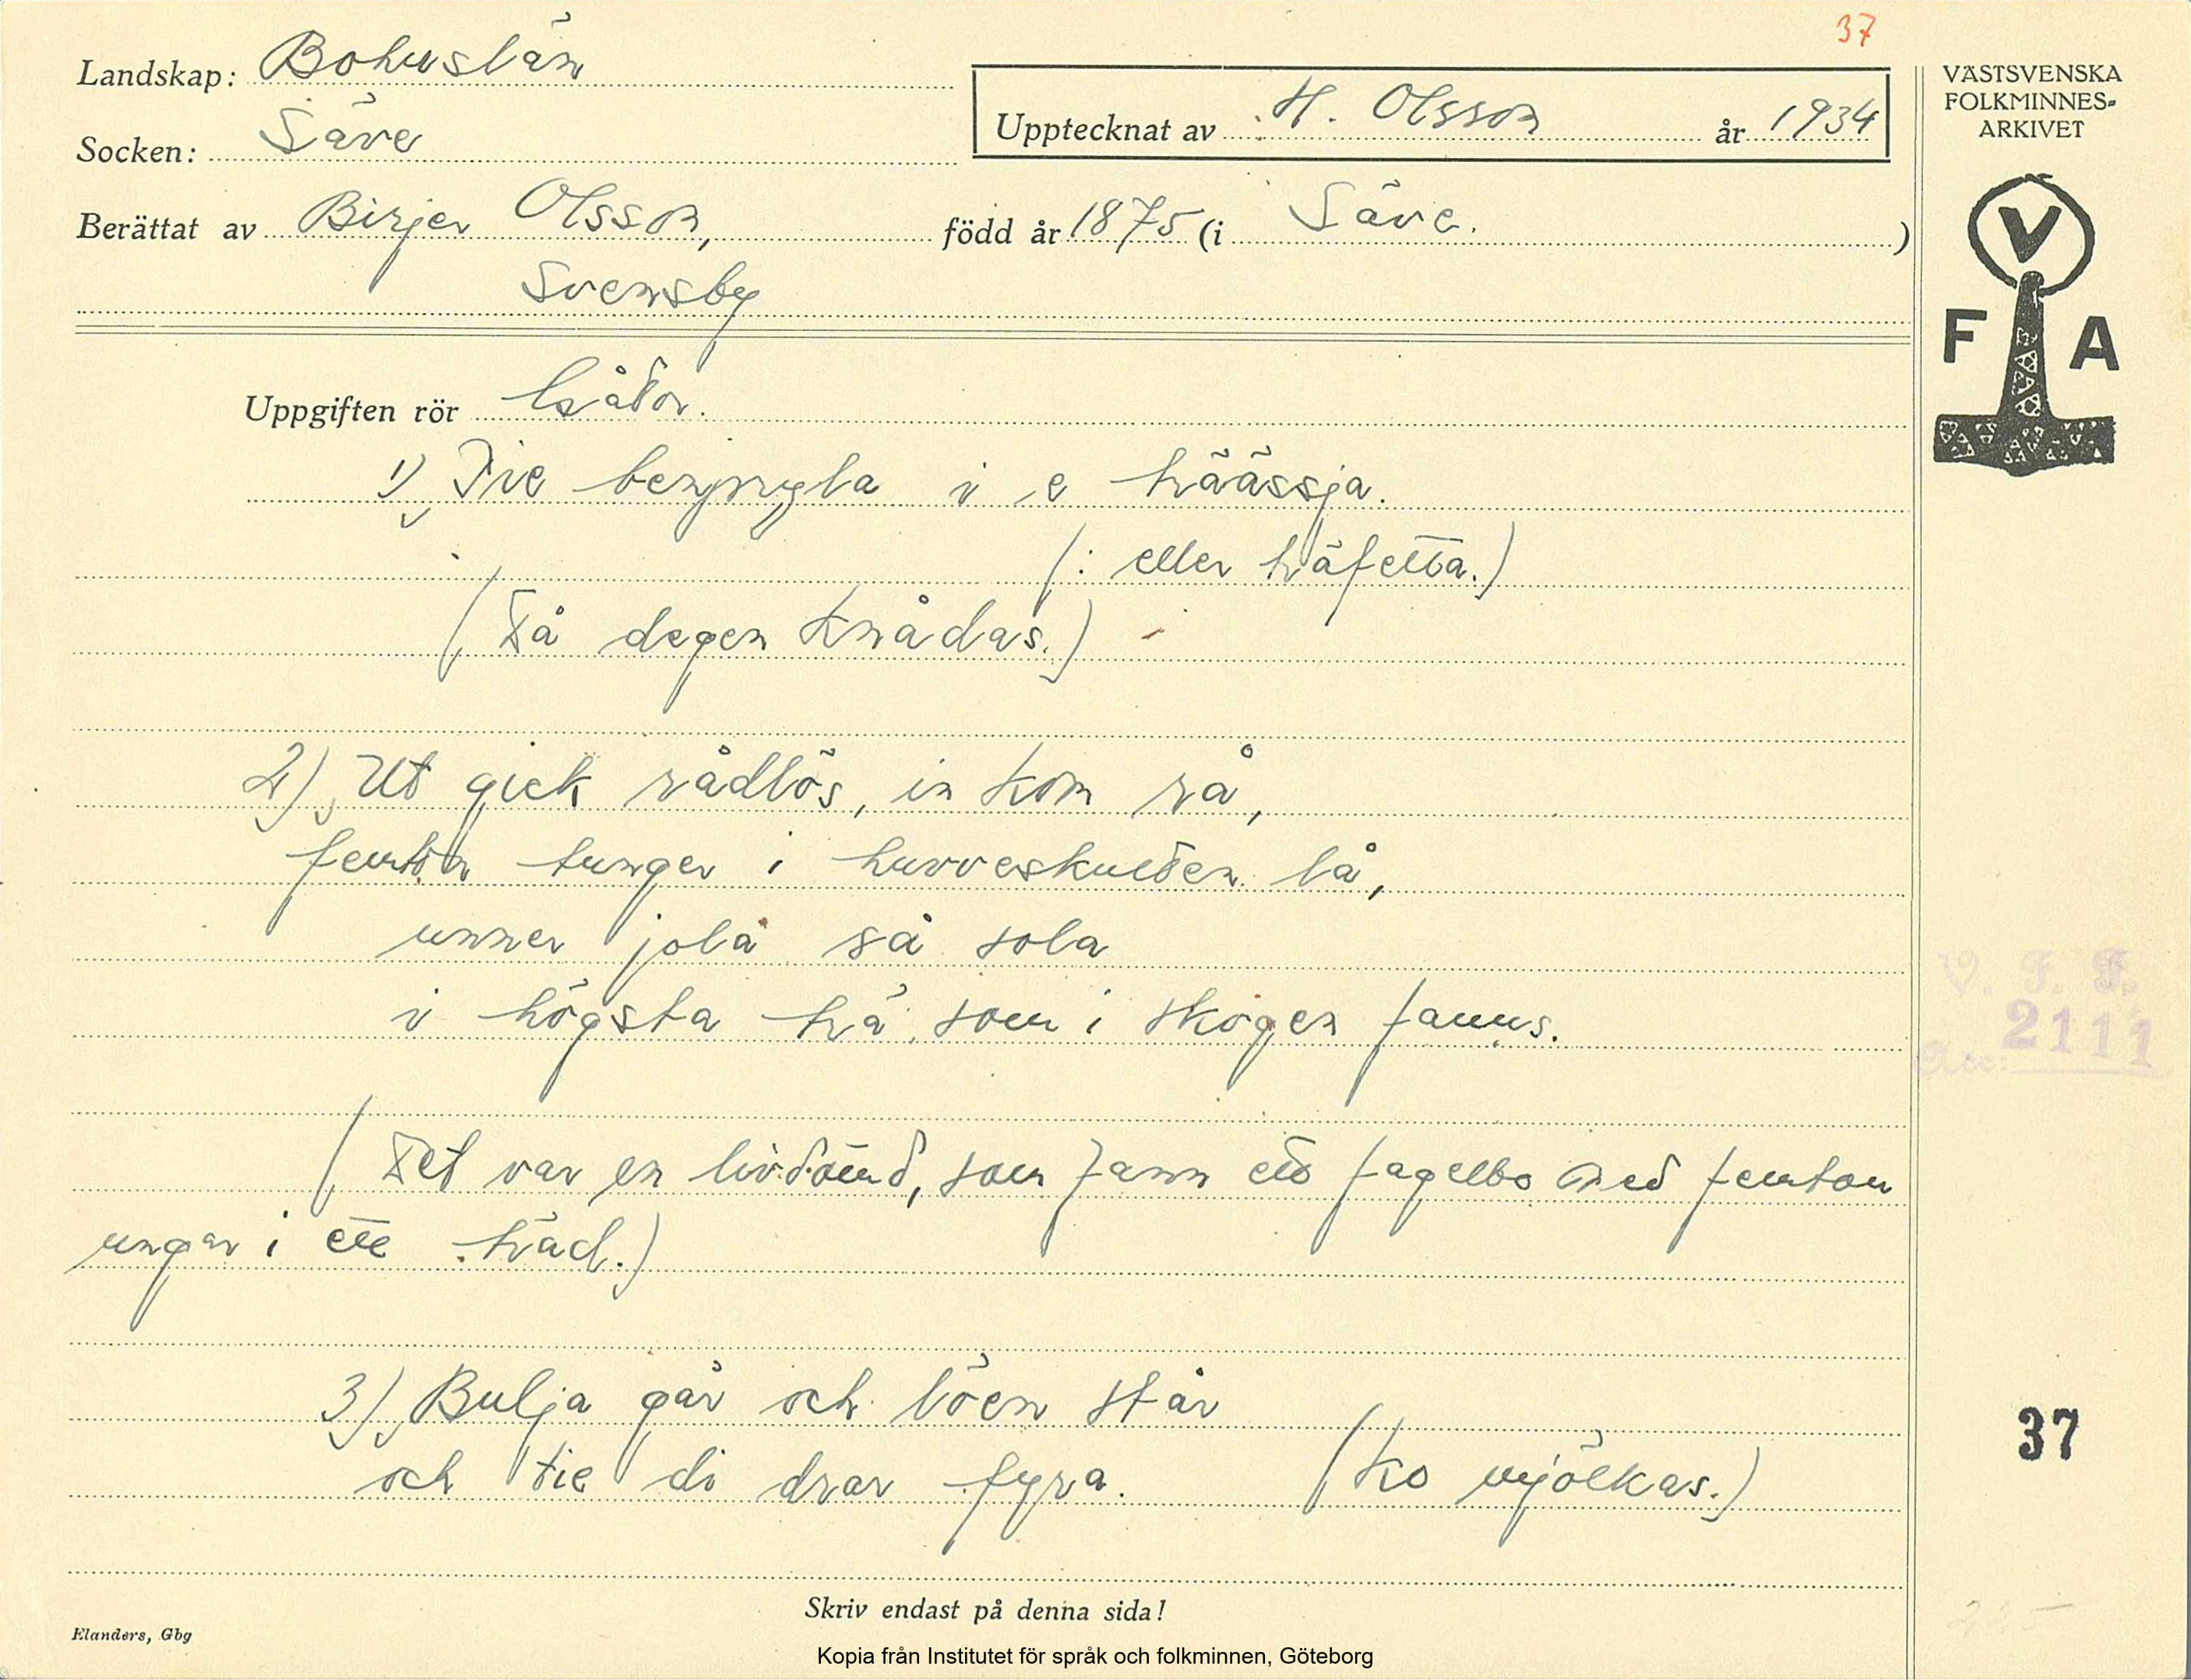 37
Landskap: Bohuslän
Socken: Säve
Upptecknat av H. Olsson år 1934
VÄSTSVENSKA
FOLKMINNES-
ARKIVET
Berättat av Birjer Olsson, född år 1875 (i Säve.)
Svensby
V
F A
Uppgiften rör Gåtor.
1) Tie i e trääsja.
(: eller träfetta.)
(Då degen knådas.)
2) Ut gick rådlös, in kom rå,
femton tunger i huvveskulten lå,
unner jola så sola
i högsta trä som i skogen fanns.
(Det var en livdömd, som fann ett fågelbo med femton
ungar i ett träd.)
V. F. F.
Acc: 2111
3) Bulja går och löen står
och tie di drar fyra. (Ko mjölkas.)
37
Skriv endast på denna sida!
Elanders, Gbg
Kopia från Institutet för språk och folkminnen, Göteborg